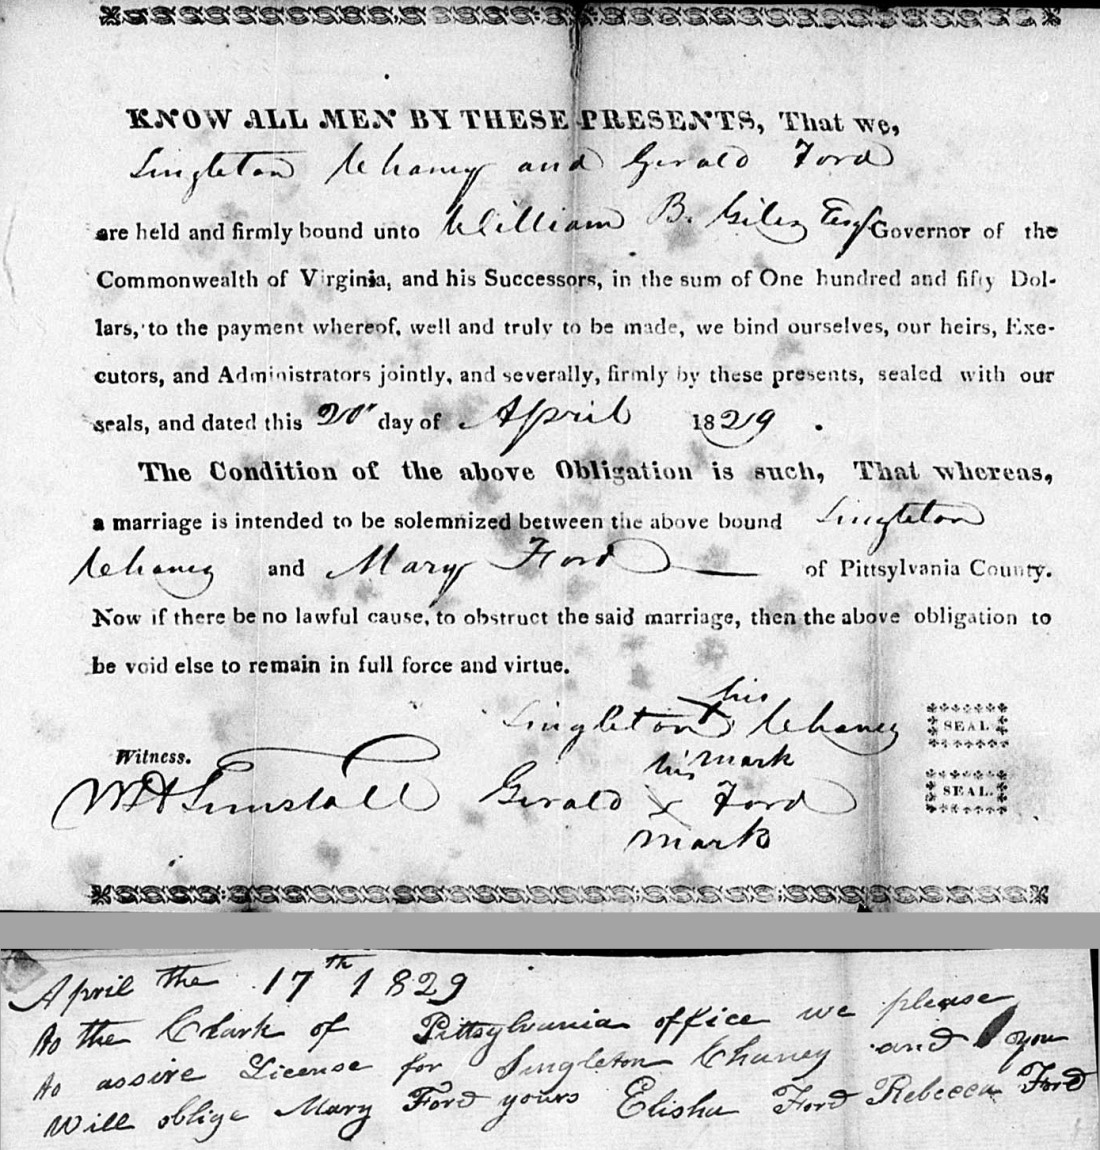 KNOW ALL MEN BY THESE PRESENTS, That we,
Singleton Chaney and Gerald Ford
are held and firmly bound unto William B. Giles Esqr Governor of the
Commonwealth of Virginia, and his Successors, in the sum of One hundred and fifty Dol-
lars, to the payment whereof, well and truly to be made, we bind ourselves, our heirs, Exe-
cutors, and Administrators jointly, and severally, firmly by these presents, sealed with our
seals, and dated this 20th day of April 1829.
The Condition of the above Obligation is such, That whereas,
a marriage is intended to be solemnized between the above bound Singleton
Chaney and Mary Ford of Pittsylvania County.
Now if there be no lawful cause, to obstruct the said marriage, then the above obligation to
be void else to remain in full force and virtue.
his
Singleton X Chaney SEAL
mark
Witness.
his
WH Tunstall Gerald X Ford SEAL.
mark
April the 17th 1829
to the Clark of Pittsylvania office we please
to assire License for Singleton Chaney and you
Will oblige Mary Ford yours Elisha Ford Rebecca Ford